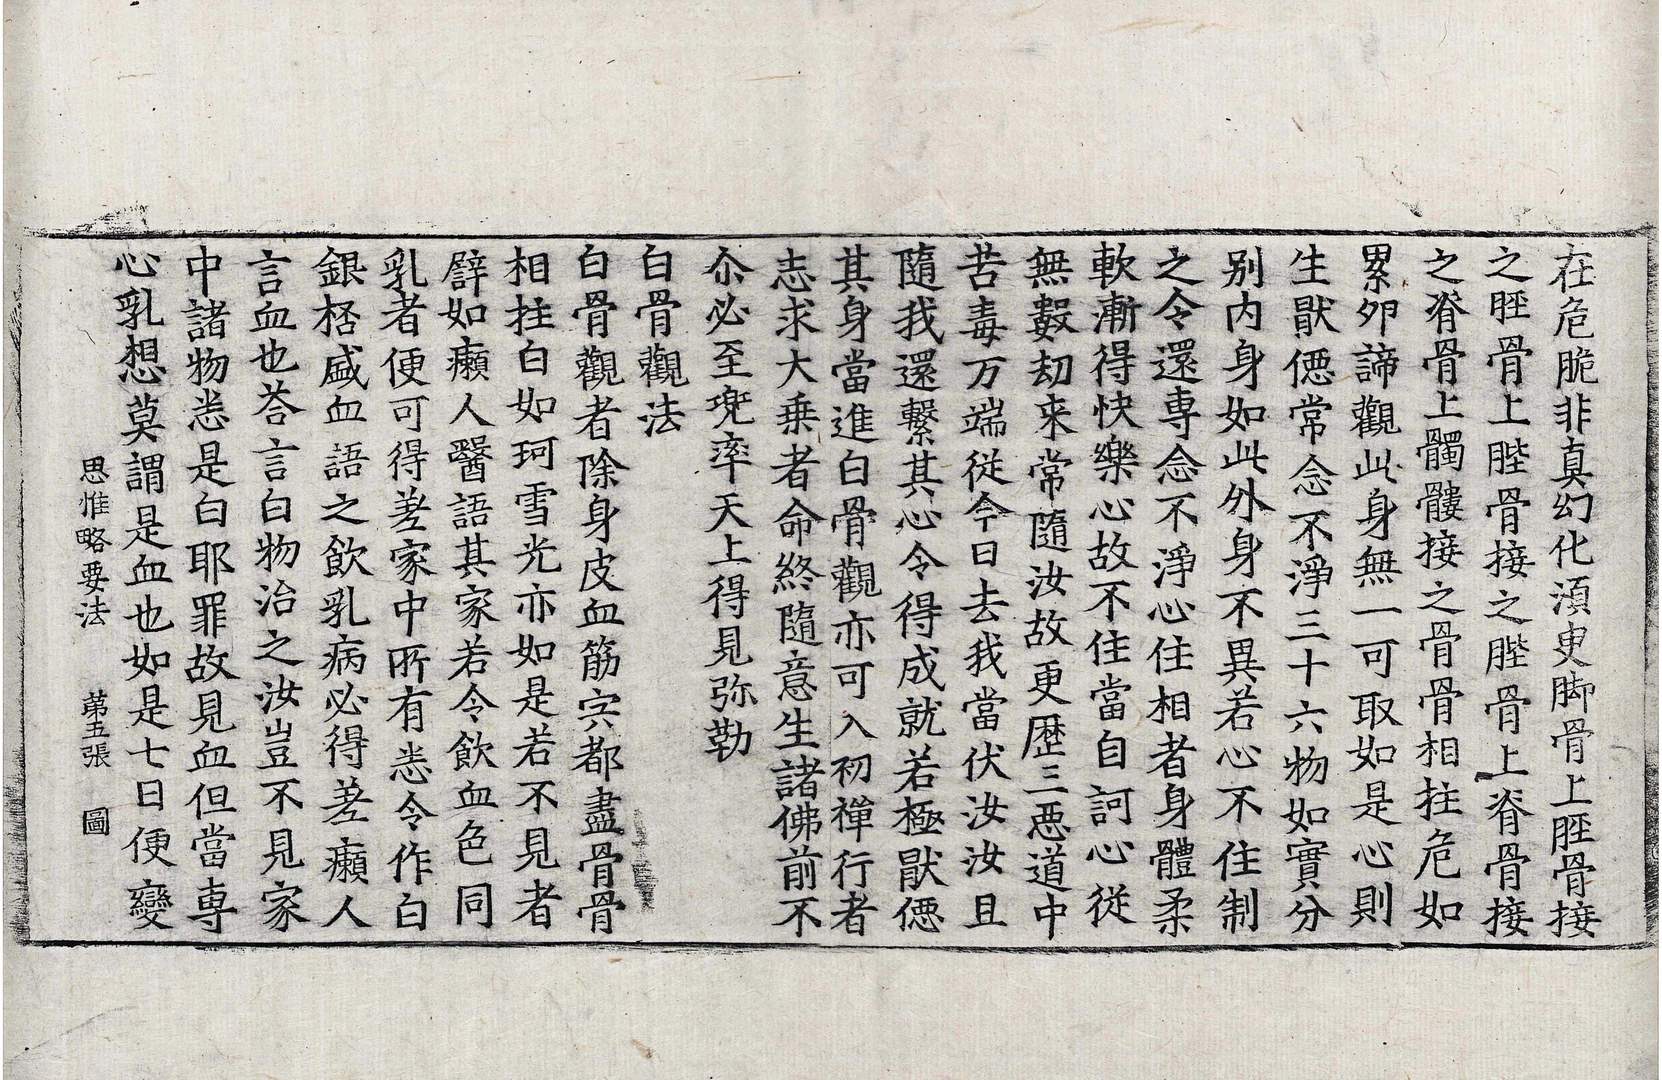 在危脆非真幻化湏臾脚骨上脛骨接
之脛骨上䏶骨接之䏶骨上脊骨接
之脊骨上髑髏接之骨骨相拄危如
累夘諦觀此身無一可取如是心則
生猒㥶常念不淨三十六物如實分
别内身如此外身不異若心不住制
之令還専念不淨心住相者身體柔
軟漸得快樂心故不住當自訶心従
無數刼来常隨汝故更歴三惡道中
苦毒万端従今日去我當伏汝汝且
隨我還繫其心令得成就若極猒㥶
其身當進白骨觀亦可入初禪行者
志求大乗者命終隨意生諸佛前不
尒必至兜率天上得見弥勒
白骨觀法
白骨觀者除身皮血筋宍都盡骨骨
相拄白如珂雪光亦如是若不見者
譬如癩人醫語其家若令飲血色同
乳者便可得差家中所有悉令作白
銀桮盛血語之飲乳病必得差癩人
言血也荅言白物治之汝豈不見家
中諸物悉是白耶罪故見血但當専
心乳想莫謂是血也如是七日便變
思惟略要法 苐五張 圖